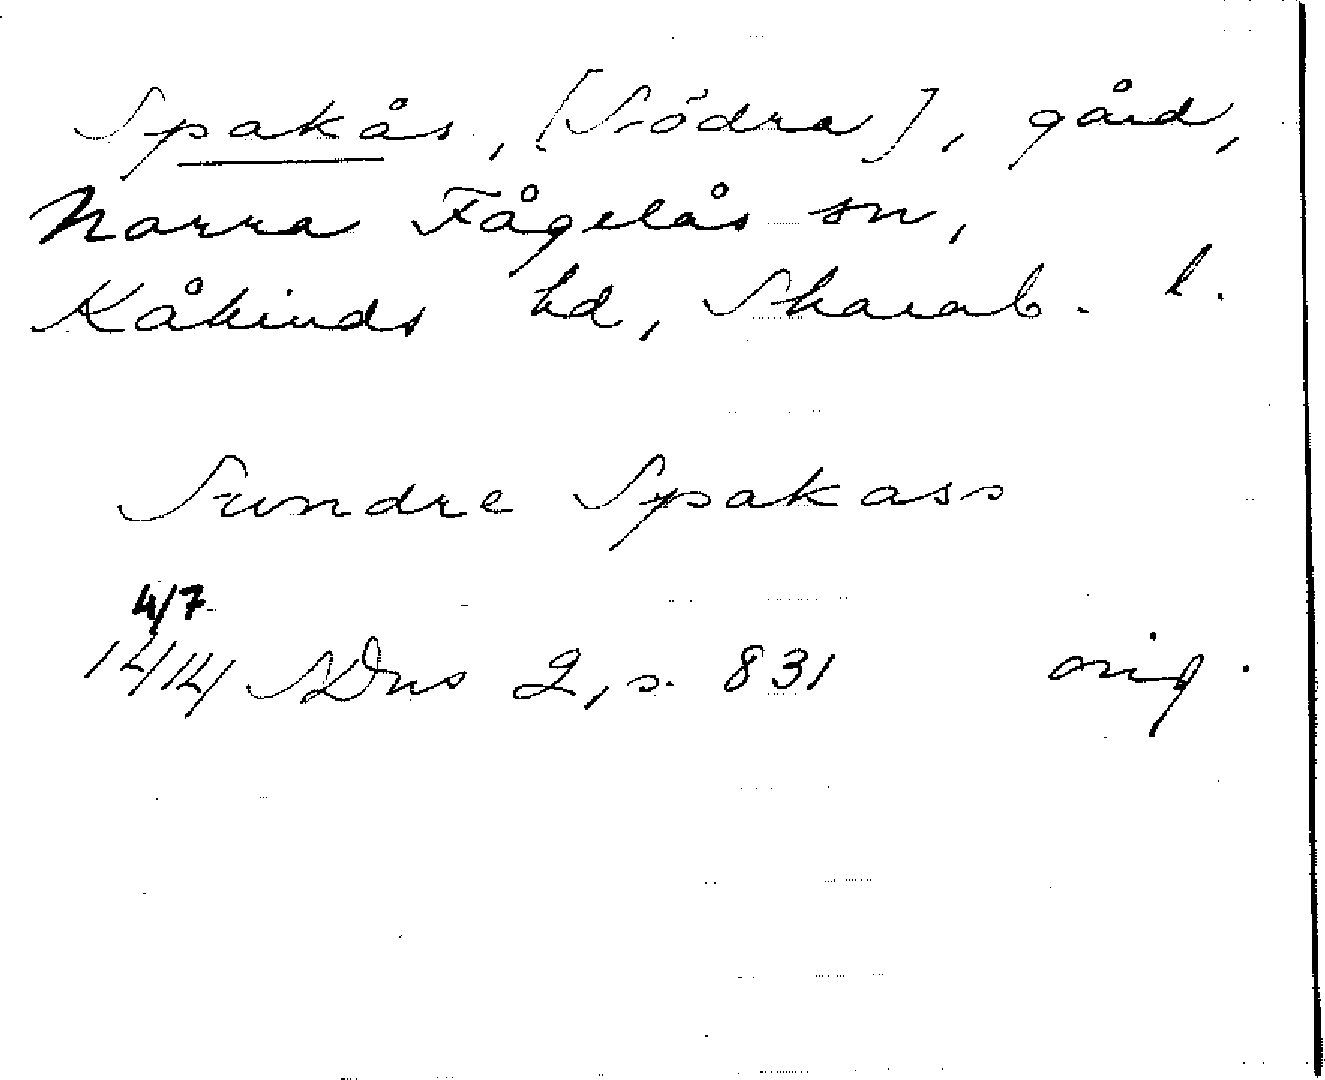 Spakås, [Södra], gård,
Norra Fågelås sn,
Kåkinds hd, Skarab. l.
Sundre Spakass
4/7
1414 SDns 2, s. 831 orig.